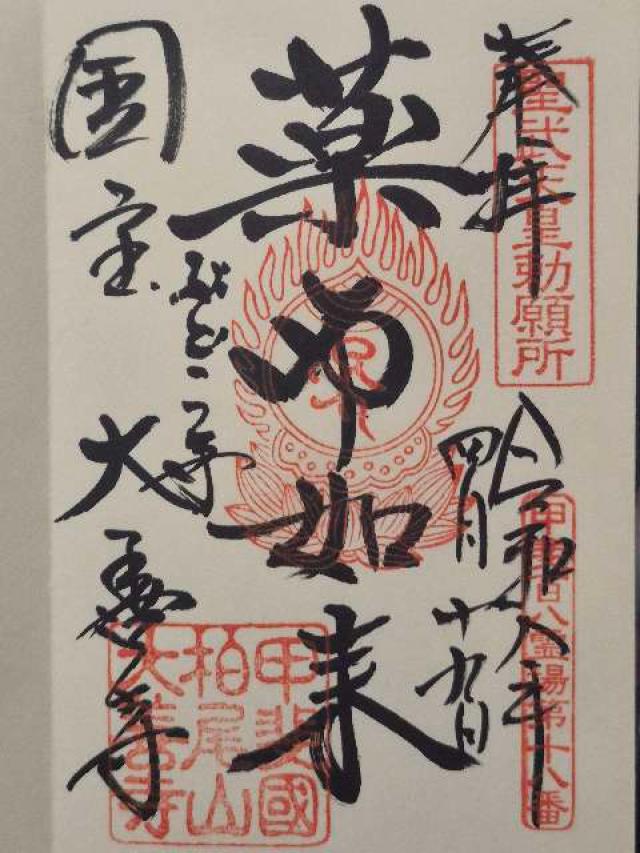 奉拝
聖武天皇勅願所
令和八年
四月十九日
甲斐百八霊場第十八番
薬師如来
ぶどう寺
国宝
大善寺
甲斐國
柏尾山
大善寺